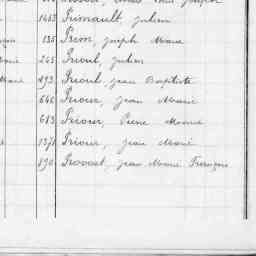 1453 Primault Julien
138 Prim, Joseph Marie
245 Prioul, Julien
193 Prioul, Jean Baptiste
646 Priour, Jean Marie
613 Priour, Pierre Marie
1371 Priour, Jean Marie
190 Provost, Jean Marie François